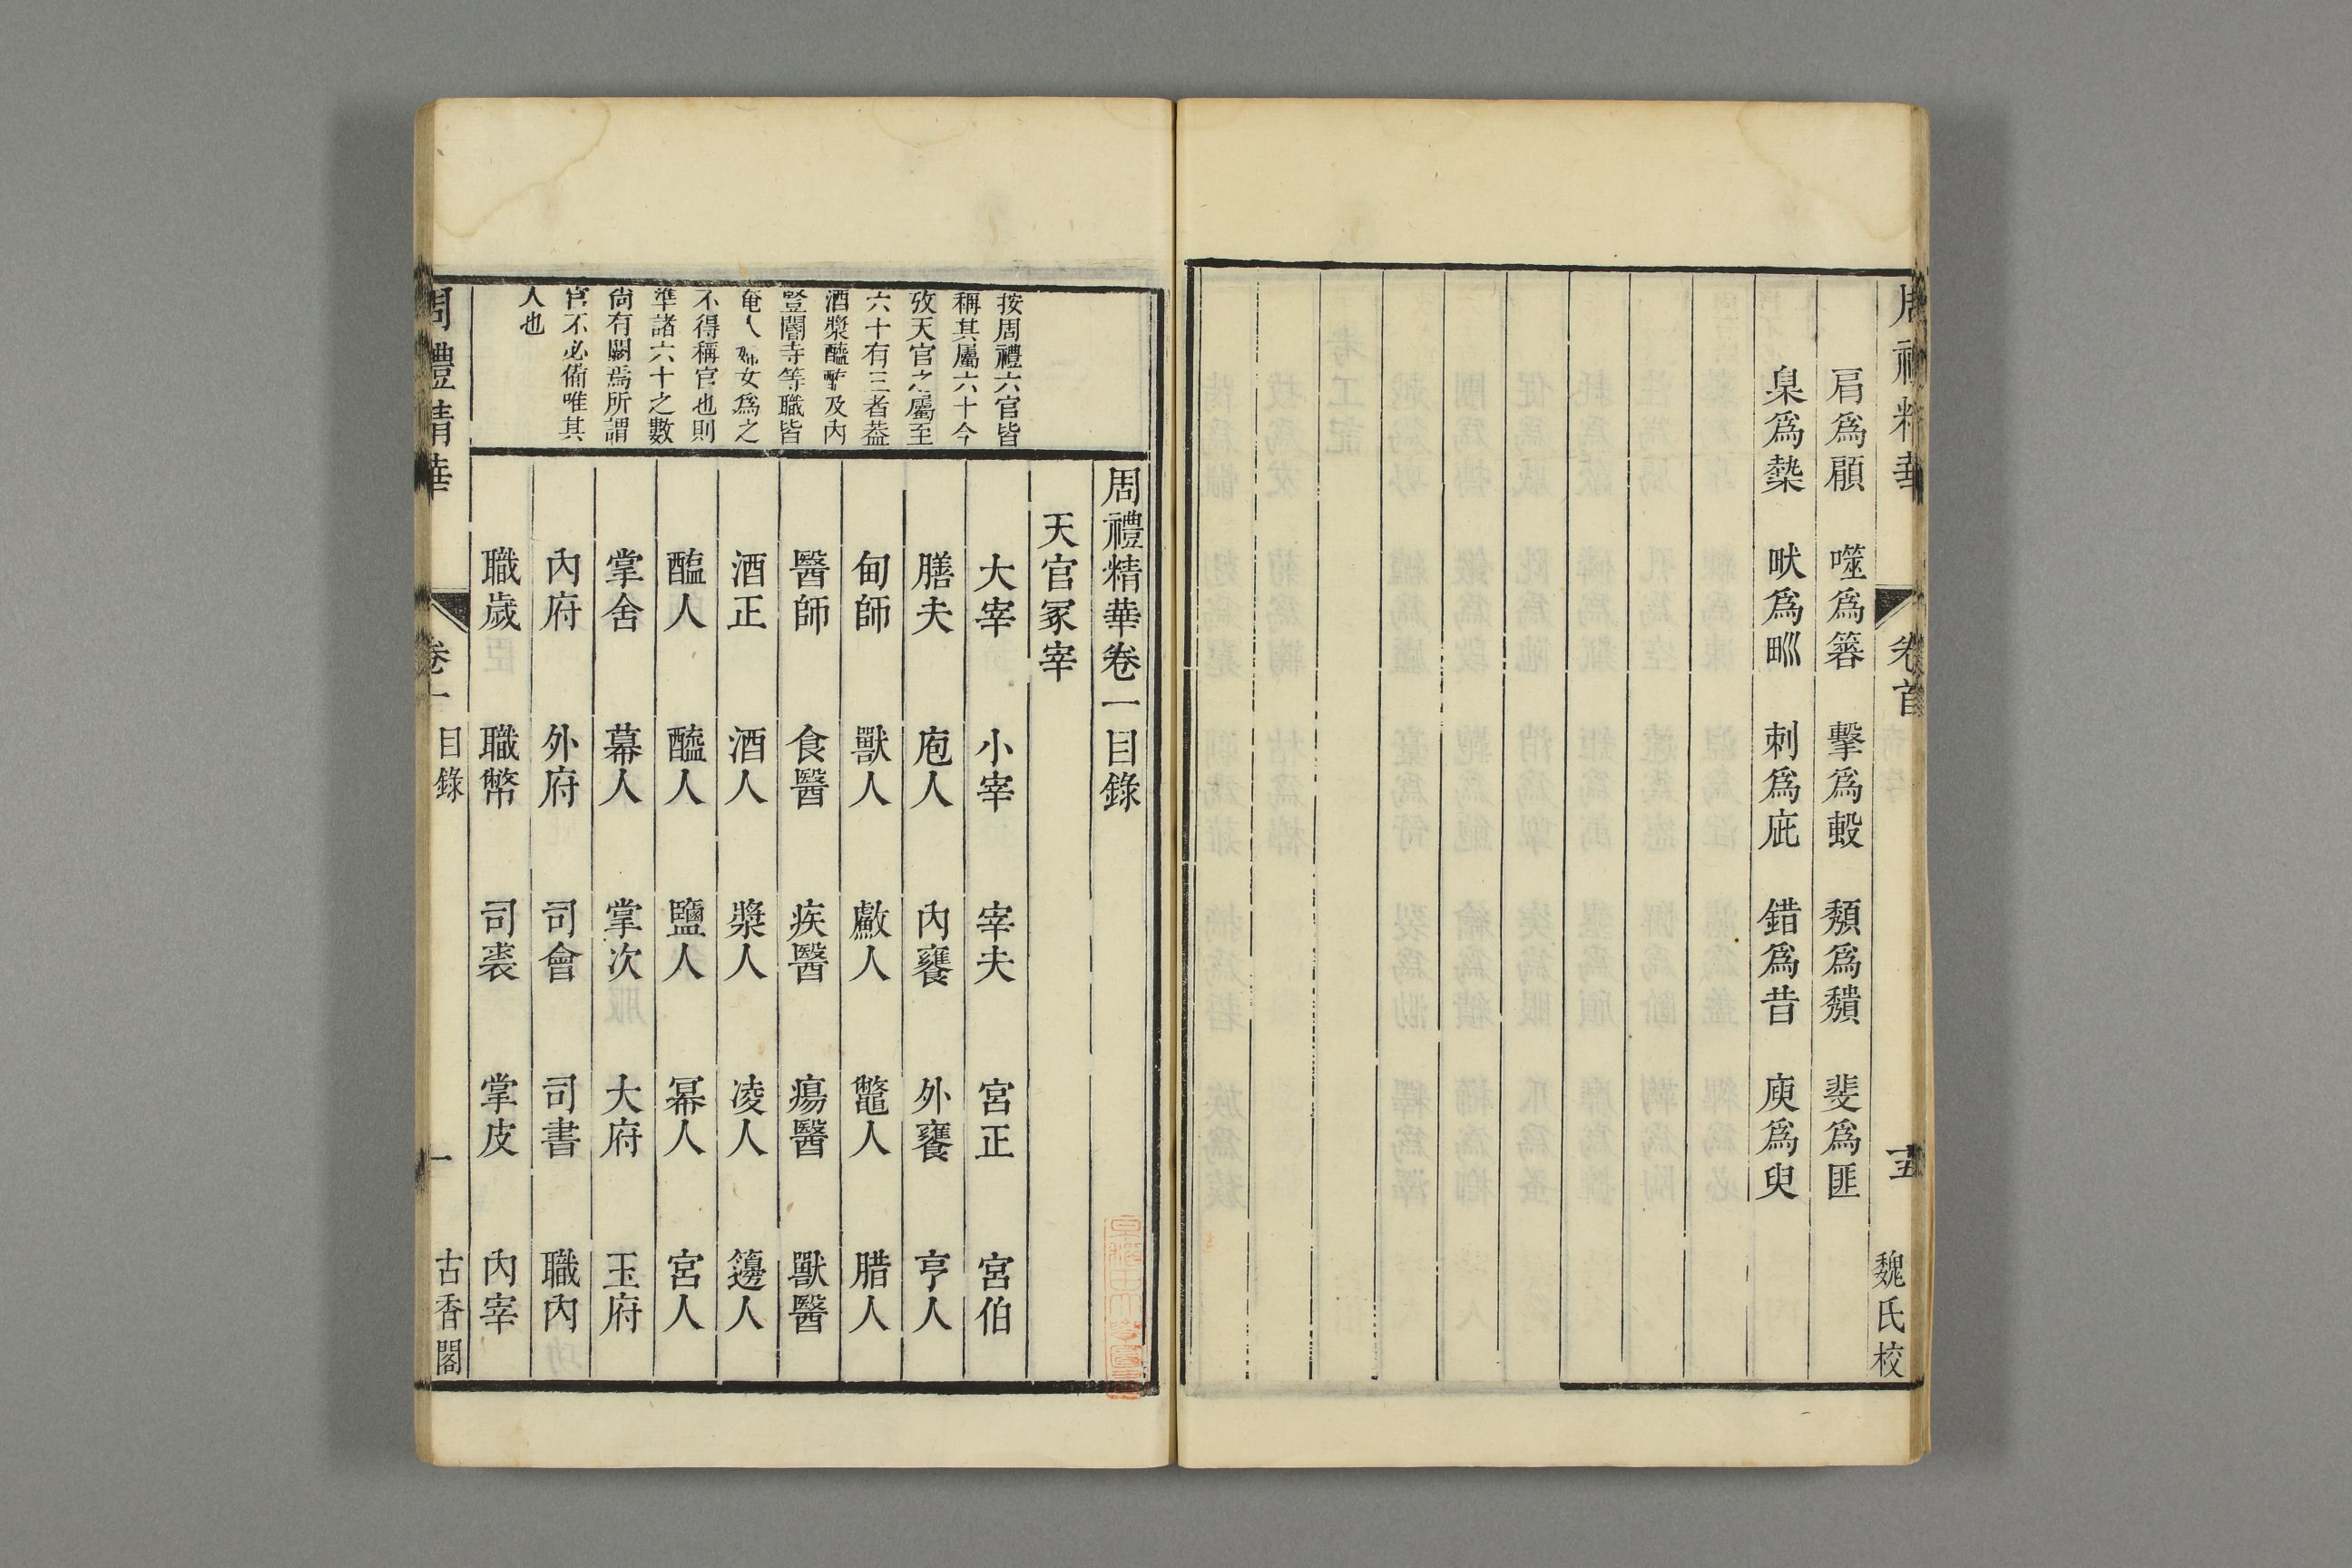 周禮精華
卷首
十五
魏氏校
肩爲顅　噬爲簭　擊爲毄　頽爲穨　斐爲匪
臬爲槷　畎爲甽　刺爲庛　錯爲昔　庾爲臾
周禮精華卷一目錄
天官冢宰
大宰　小宰　宰夫　宮正　宮伯
膳夫　庖人　內饔　外饔　亨人
甸師　獸人　䱷人　鼈人　腊人
醫師　食醫　疾醫　瘍醫　獸醫
酒正　酒人　漿人　凌人　籩人
醢人　醯人　鹽人　冪人　宮人
掌舍　幕人　掌次　大府　玉府
內府　外府　司會　司書　職內
職歲　職幣　司裘　掌皮　內宰
按周禮六官皆
稱其屬六十今
攷天官之屬至
六十有三者葢
酒漿醯醢及內
豎閽寺等職皆
奄人女爲之
不得稱官也則
準諸六十之數
尙有闕焉所謂
官不必備唯其
人也
周禮精華
卷一
目錄
一
古香閣